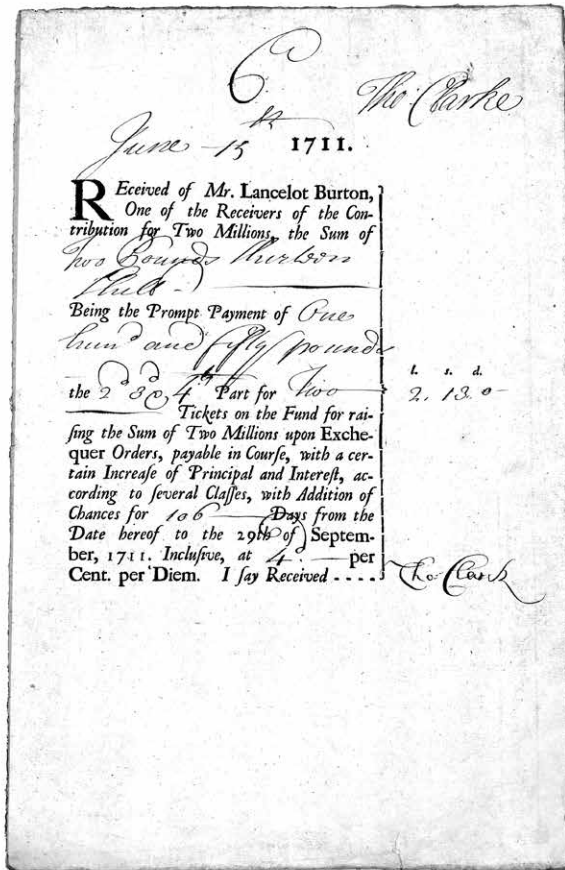 6
Tho Clarke
June 15th 1711.
REceived of Mr. Lancelot Burton,
One of the Receivers of the Con-
tribution for Two Millions, the Sum of
Two Pounds thirteen
shill
Being the Prompt Payment of One
hund and fifty pounds
l. s. d.
the 2d 3d & 4th Part for Two 2. 13. 0
Tickets on the Fund for rai-
ſing the Sum of Two Millions upon Exche-
quer Orders, payable in Courſe, with a cer-
tain Increaſe of Principal and Intereſt, ac-
cording to ſeveral Claſſes, with Addition of
Chances for 106 Days from the
Date hereof to the 29th of Septem-
ber, 1711. Incluſive, at 4 per
Cent. per Diem. I ſay Received - - - - Tho Clarck